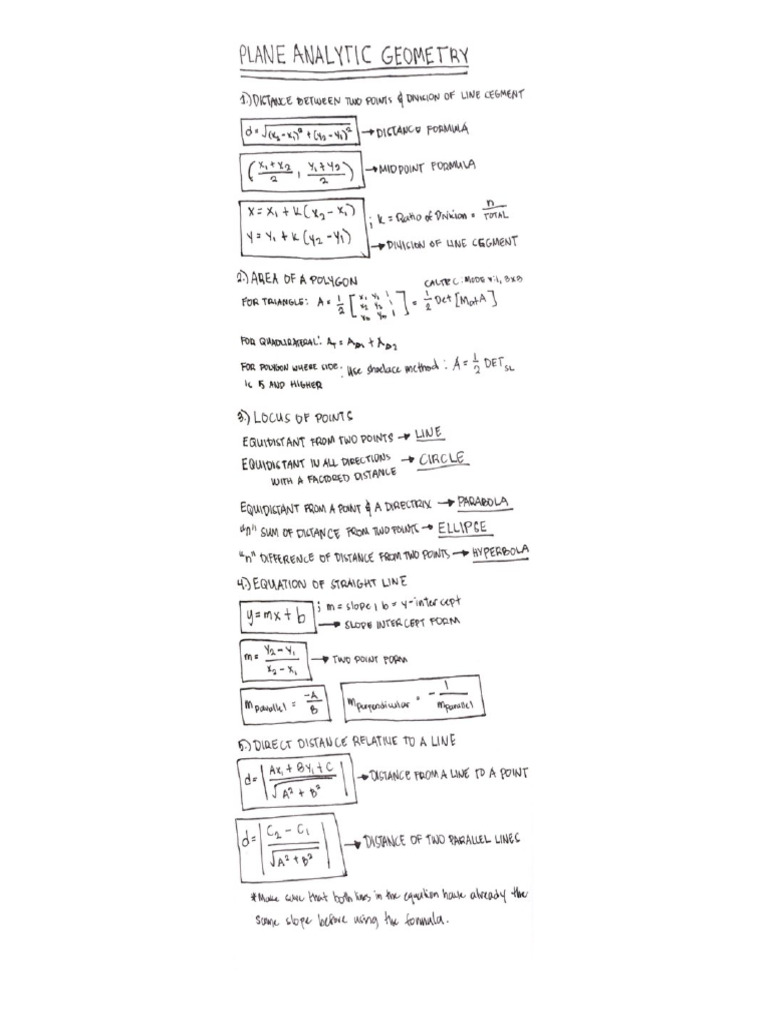 PLANE ANALYTIC GEOMETRY
1.) DISTANCE BETWEEN TWO POINTS & DIVISION OF LINE CEGMENT
d = √(x₂-x₁)² + (y₂-y₁)² → DISTANCE FORMULA
(x₁+x₂/2, y₁+y₂/2) → MIDPOINT FORMULA
x = x₁ + k(x₂-x₁)
y = y₁ + k(y₂-y₁)
; k = Ratio of Division = n/TOTAL
→ DIVISION OF LINE CEGMENT
2.) AREA OF A POLYGON
CALTEC: MODE 4:1, 3x3
FOR TRIANGLE: A = 1/2 [x₁ y₁ 1 x₂ y₂ 1 1] = 1/2 Det [MatA]
FOR QUADLIRATERAL: A_T = A_Δ1 + A_Δ2
FOR POLYGON WHERE SIDE: Use shoelace method: A = 1/2 DET_SL
IS 5 AND HIGHER
3.) LOCUS OF POINTS
EQUIDISTANT FROM TWO POINTS → LINE
EQUIDISTANT IN ALL DIRECTIONS → CIRCLE
WITH A FACTORED DISTANCE
EQUIDISTANT FROM A POINT & A DIRECTRIX → PARABOLA
"n" SUM OF DISTANCE FROM TWO POINTS → ELLIPSE
"n" DIFFERENCE OF DISTANCE FROM TWO POINTS → HYPERBOLA
4.) EQUATION OF STRAIGHT LINE
y = mx + b ; m = slope, b = y-intercept
→ SLOPE INTERCEPT FORM
m = y₂-y₁/x₂-x₁ → TWO POINT FORM
m parallel = -A/B m perpendicular = -1/m parallel
5.) DIRECT DISTANCE RELATIVE TO A LINE
d = |Ax₁ + By₁ + C/√A² + B²| → DISTANCE FROM A LINE TO A POINT
d = |C₂ - C₁/√A² + B²| → DISTANCE OF TWO PARALLEL LINES
*Make sure that both lines in the equation have already the
same slope before using the formula.